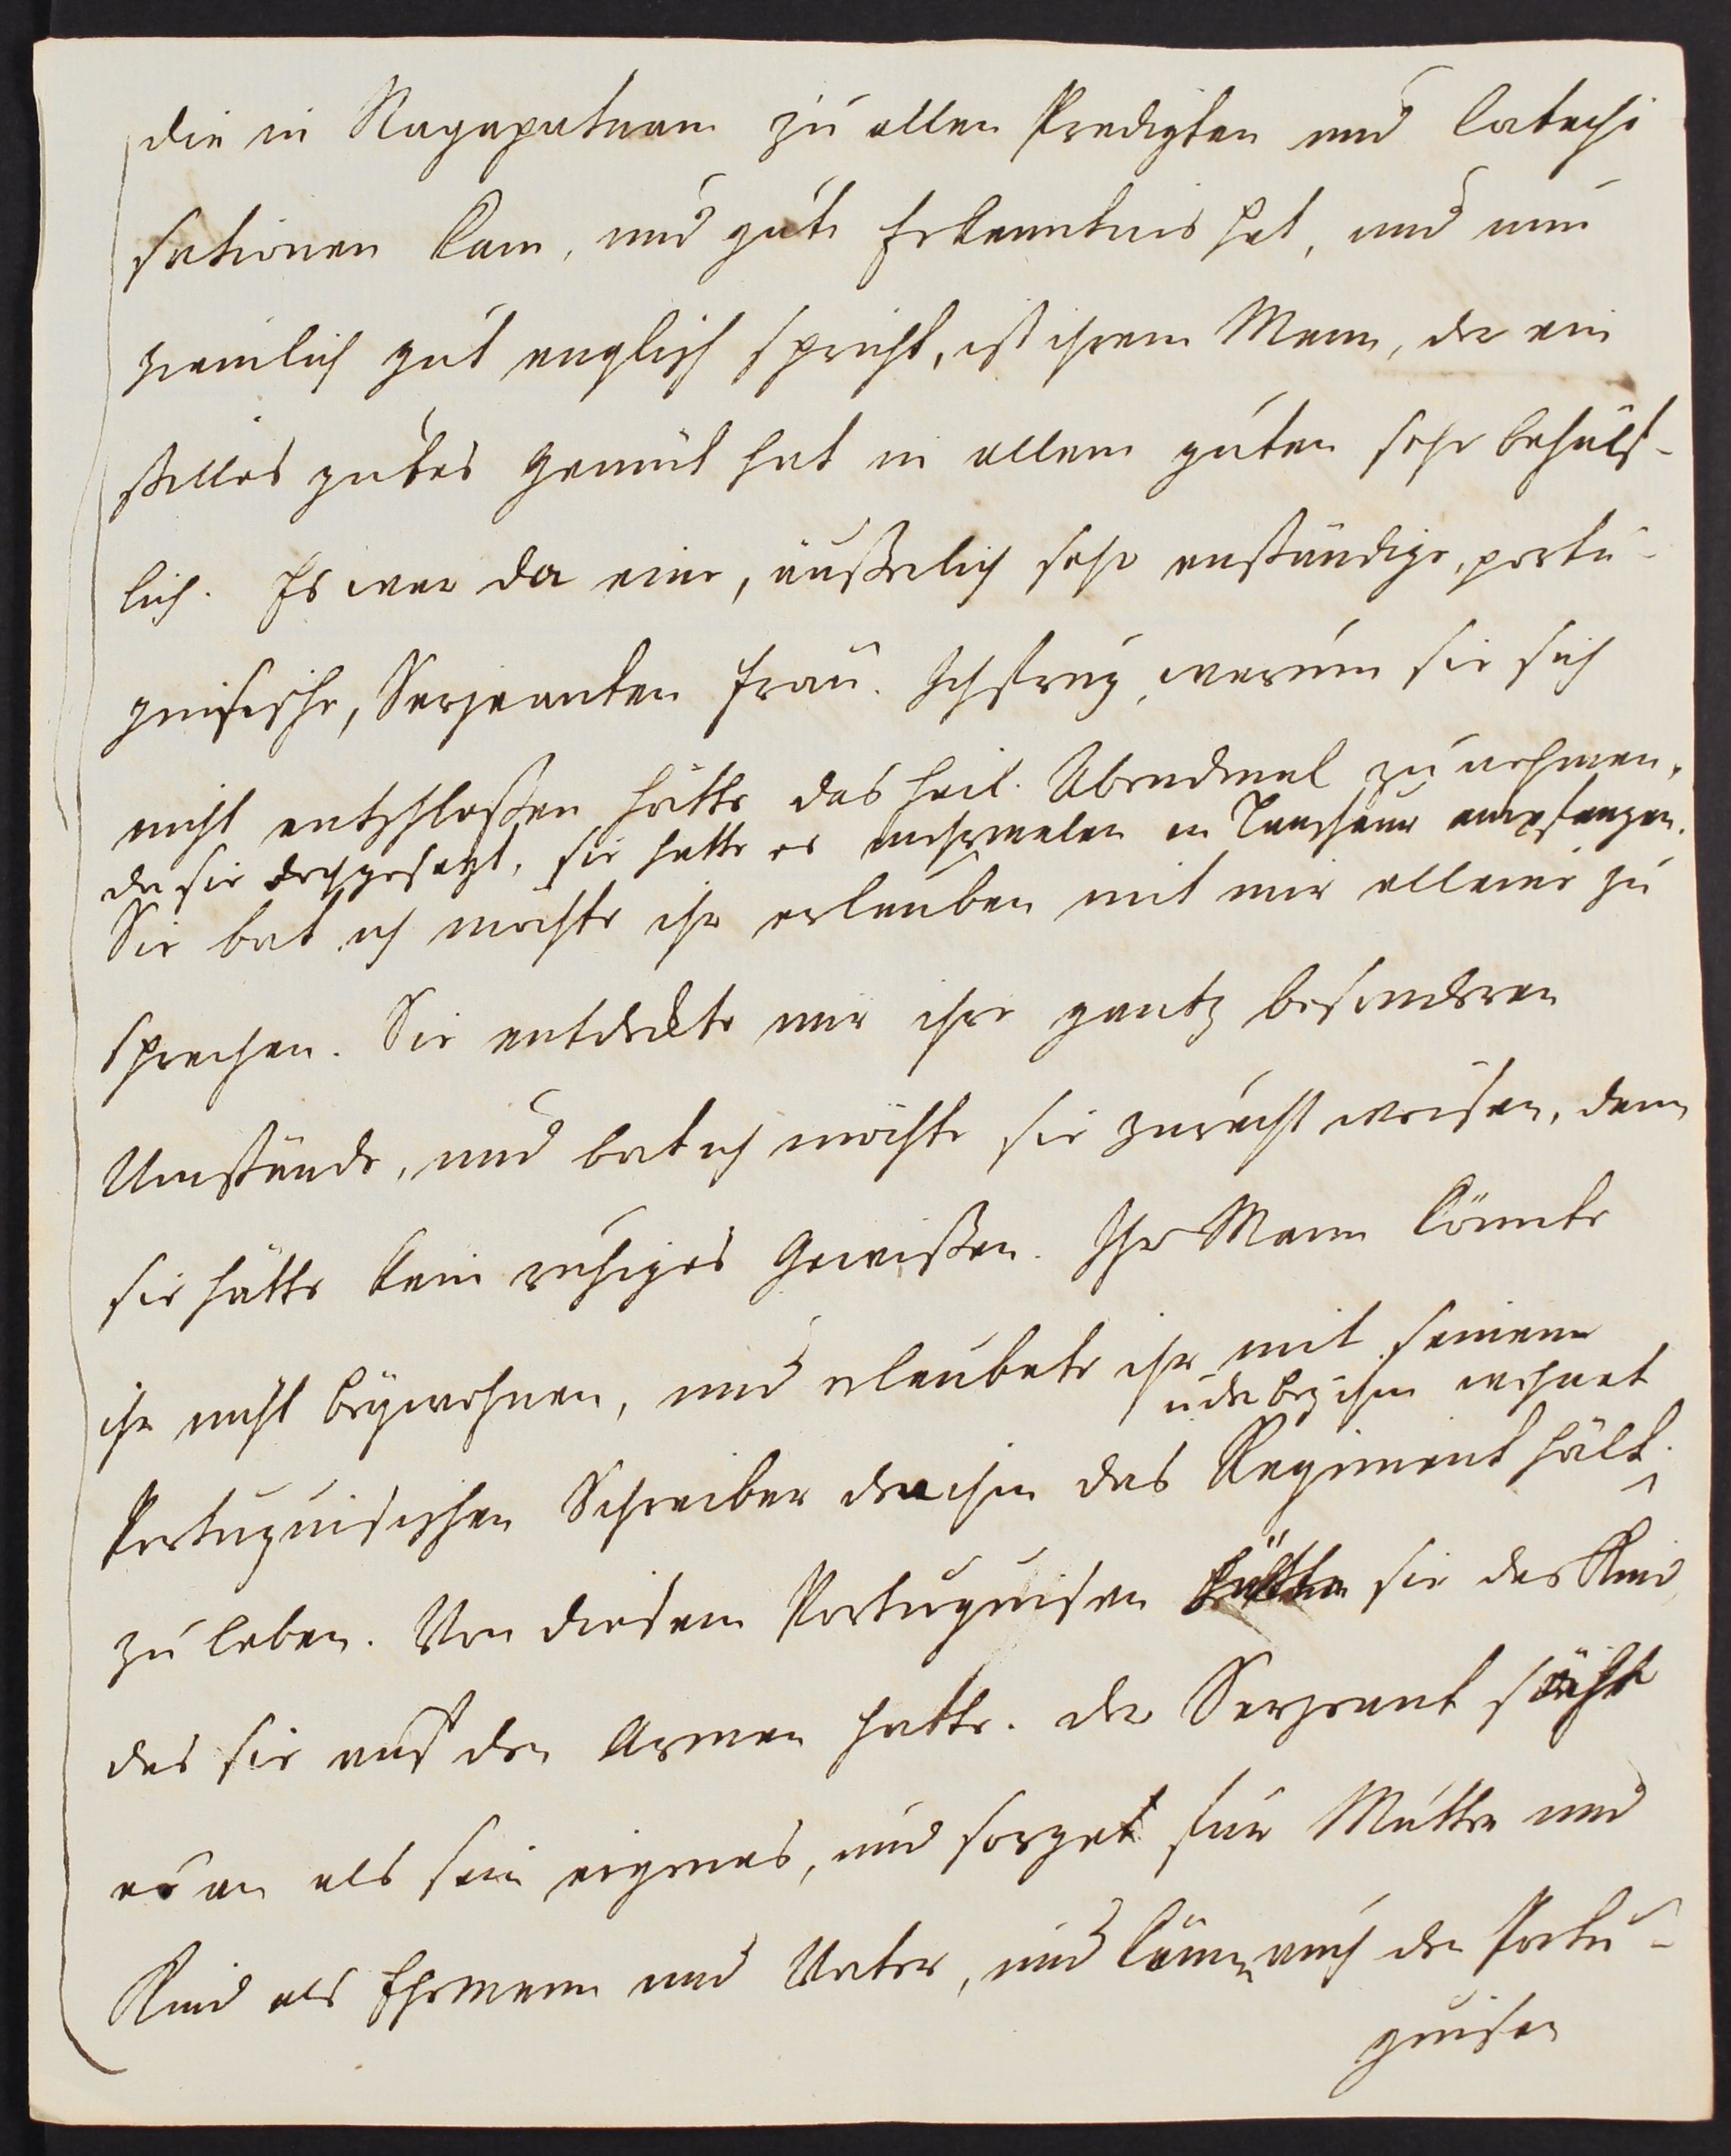 die in Nagapatnam zu allen Predigten und Catechi
sationen kam, und gute Erkenntnis hat, und nun
ziemlich gut englisch spricht, ist ihrem Mann, der ein
stilles gutes Gemüt hat in allem guten sehr behülf-
lich. Es war da eine, äußerlich sehr anständige, portu-
guisische, Serjeanten Frau. Ich frug, warum sie sich
nicht entschloßen hätte das heil. Abendmal zu nehmen,
da sie doch gesagt, sie hatte es mehrmalen in Tanschaur empfangen.
Sie bat ich mochte ihr erlauben mit mir alleine zu
sprechen. Sie entdeckte mir ihre gantz besonderen
Umstände, und bat ich möchte sie zurecht weisen, denn
sie hätte kein ruhiges Gewißen. Ihr Mann könnte
ihr nicht beywohnen, und erlaubete ihr mit seinem
u der bey ihm wohnet
Portuguisischen Schreiber der ihm das Regiment hält
zu leben. Von diesem Portuguisen hätte sie das Kind
das sie auf den Armen hatte. der Serjeant säht
es an als sein eigenes, und sorget für Mutter und
Kind als Ehemann und Vater, und könne auch den Portu-
guisen